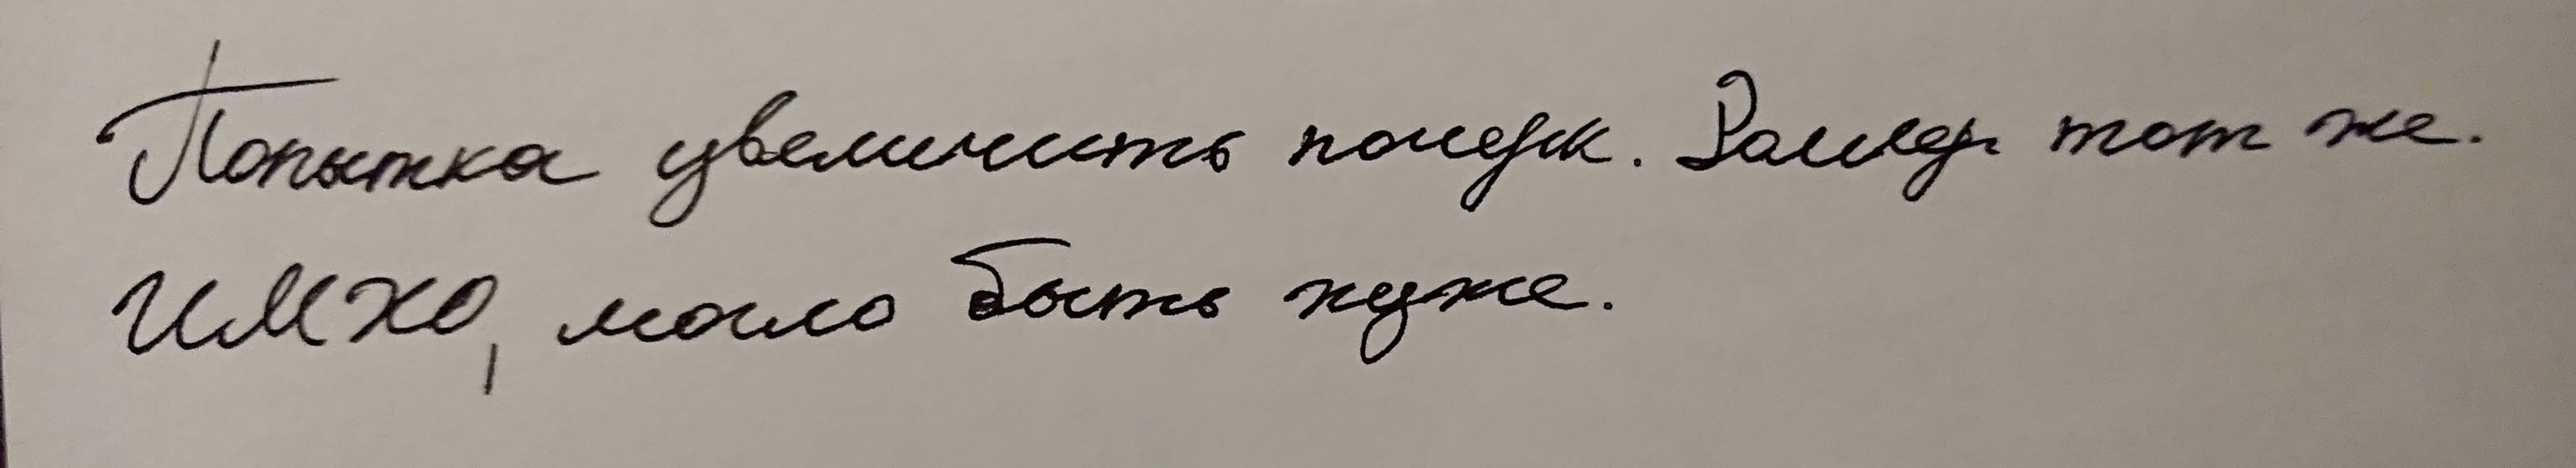 Попытка увеличить почерк. Размер тот же.
ИМХО, могло быть хуже.